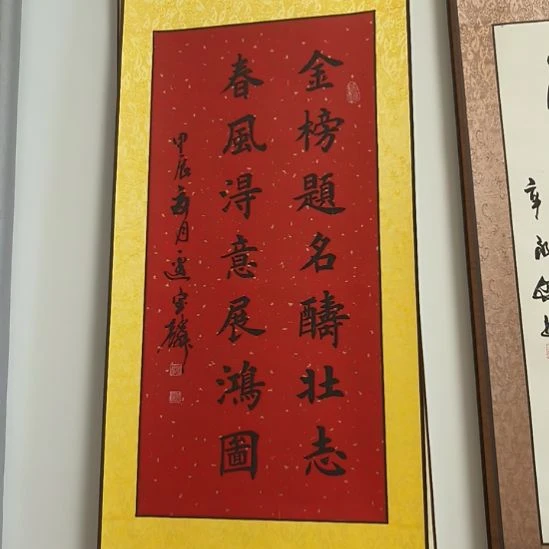 金榜題名醻壯志
春風得意展鴻圖
甲辰
月